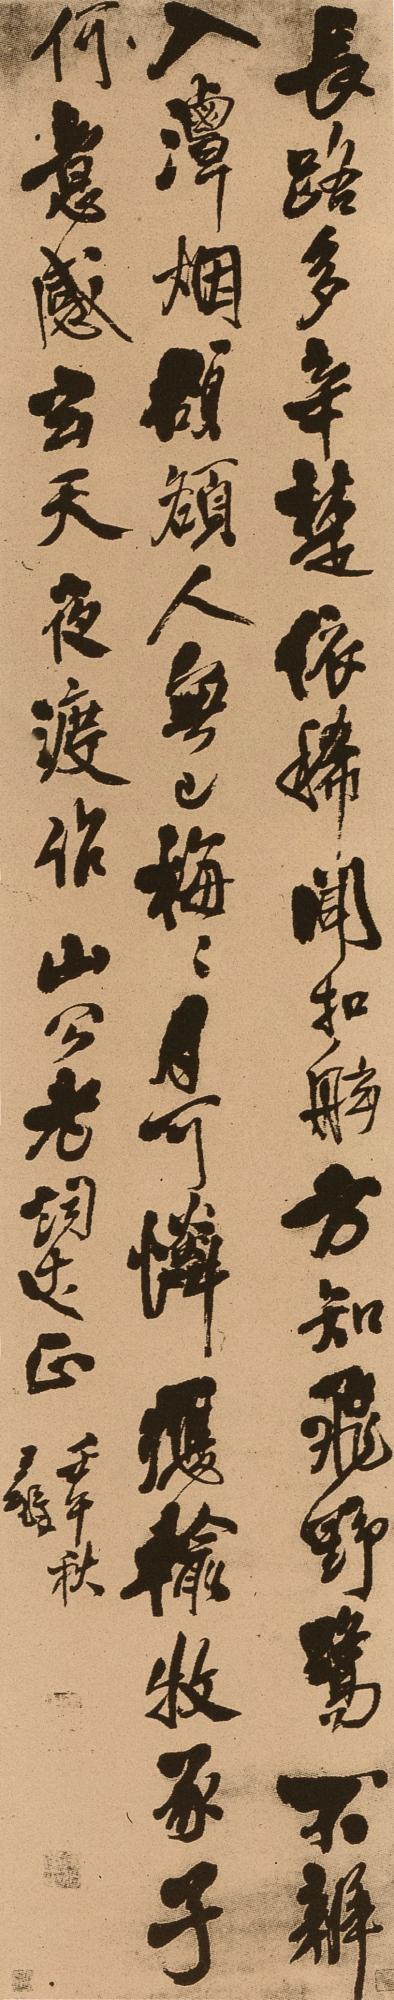 長路多辛楚依稀聞扣舷方知飛野鷺不辨
入潭烟頷人無已梅〻月可憐輸牧豕子
何意感玄天夜渡作山公老詞丈正
壬午秋
王鐸